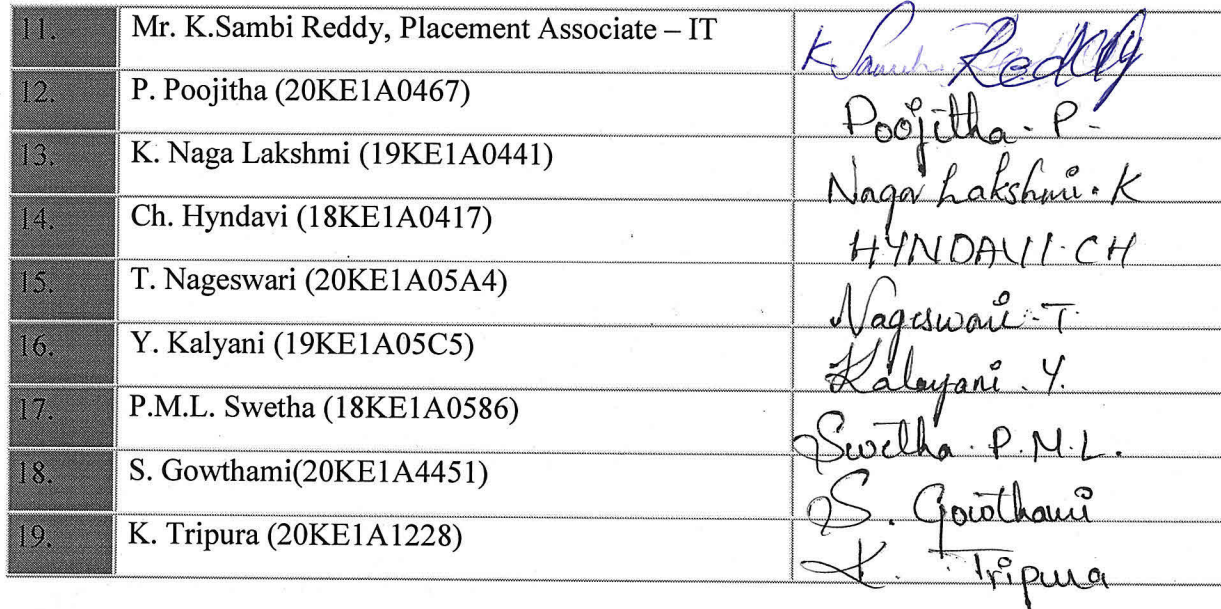 11. Mr. K.Sambi Reddy, Placement Associate – IT K Sambi Reddy
12. P. Poojitha (20KE1A0467) Poojitha - P -
13. K. Naga Lakshmi (19KE1A0441) Naga Lakshmi . K
14. Ch. Hyndavi (18KE1A0417) HYNDAVI . CH
15. T. Nageswari (20KE1A05A4) Nageswari - T
16. Y. Kalyani (19KE1A05C5) Kalayani . Y.
17. P.M.L. Swetha (18KE1A0586) Swetha . P.M.L.
18. S. Gowthami(20KE1A4451) S. Gowthami
19. K. Tripura (20KE1A1228) K. Tripura